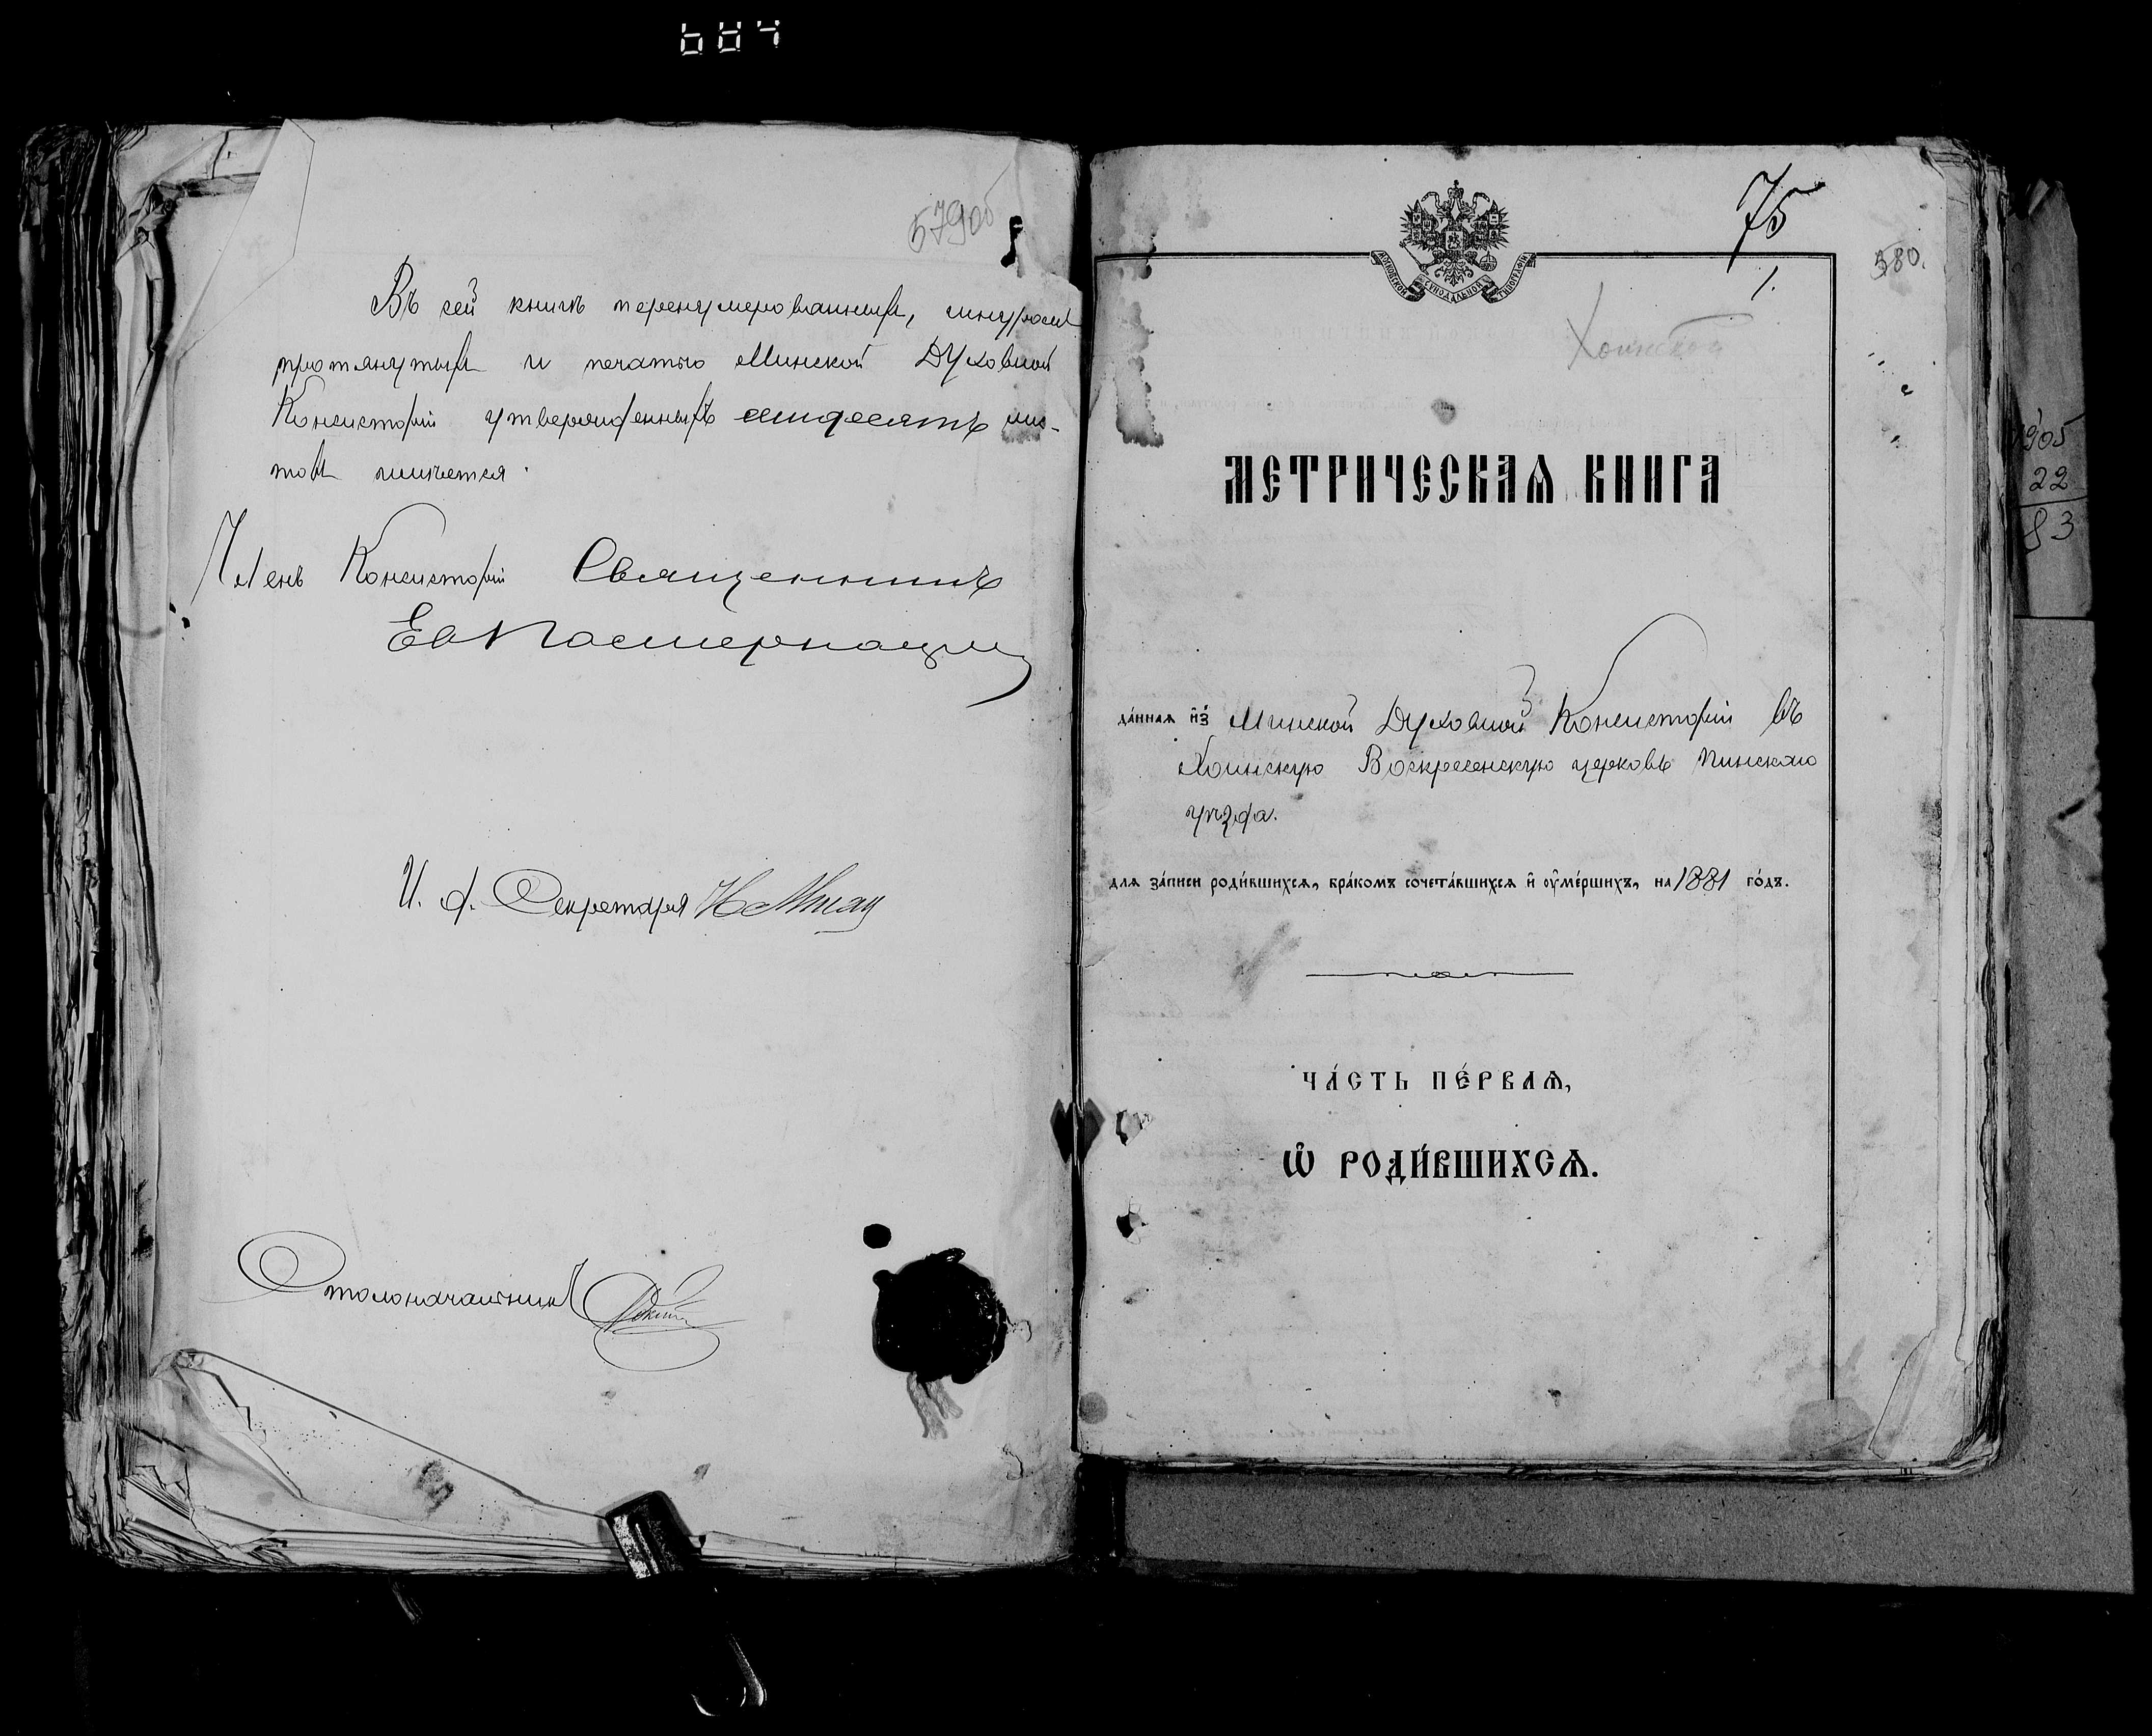 579об
Въ сей книгѣ перенумерованныхъ, шнуромъ
протянутыхъ и печатью Минской Духовной
Консисторіи утвержденныхъ семьдесятъ лис-
товъ числится.
Членъ Консисторіи Священникъ
И. д. Секретаря
Столоначальникъ
75
580.
1.
МОСКОВСКОЙ СУНОДАЛЬНОЙ ТИПОГРАФІИ
Хоинской
МЕТРИЧЕСКАѦ КНИГА
да́ннаѧ и҆з̾ Минской Духовной Консисторіи въ
Хоинскую Воскресенскую церковь Пинскаго
уѣзда.
для за́писи роди́вшихсѧ, бра́комъ сочета́вшихсѧ и҆ ᲂу҆ме́ршихъ, на 1881 го́дъ.
ЧА́СТЬ ПЕ́РВАѦ,
Ѽ РОДИ́ВШИХСѦ.
905
22
83